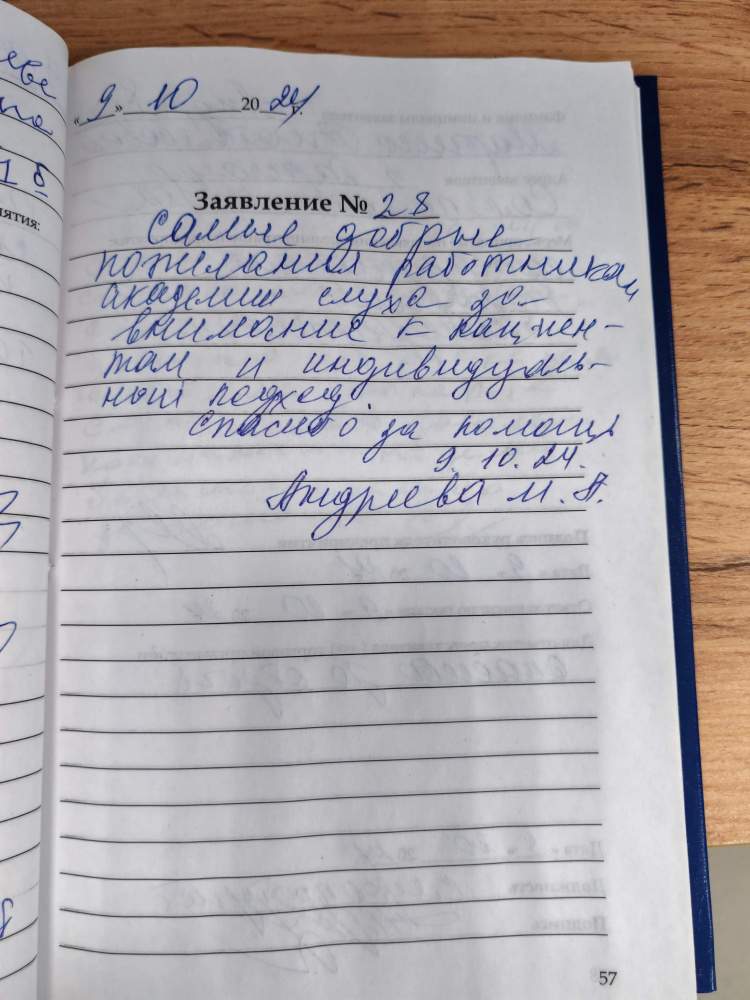 еве
1 8
иятия:
«9» 10 2024 г.
Заявление № 28
Самые добрые
пожелания работникам
академии слуха за
внимание к пациен-
там и индивидуаль-
ный подход.
Спасибо за помощь
9. 10. 24.
Андреева М. А.
57